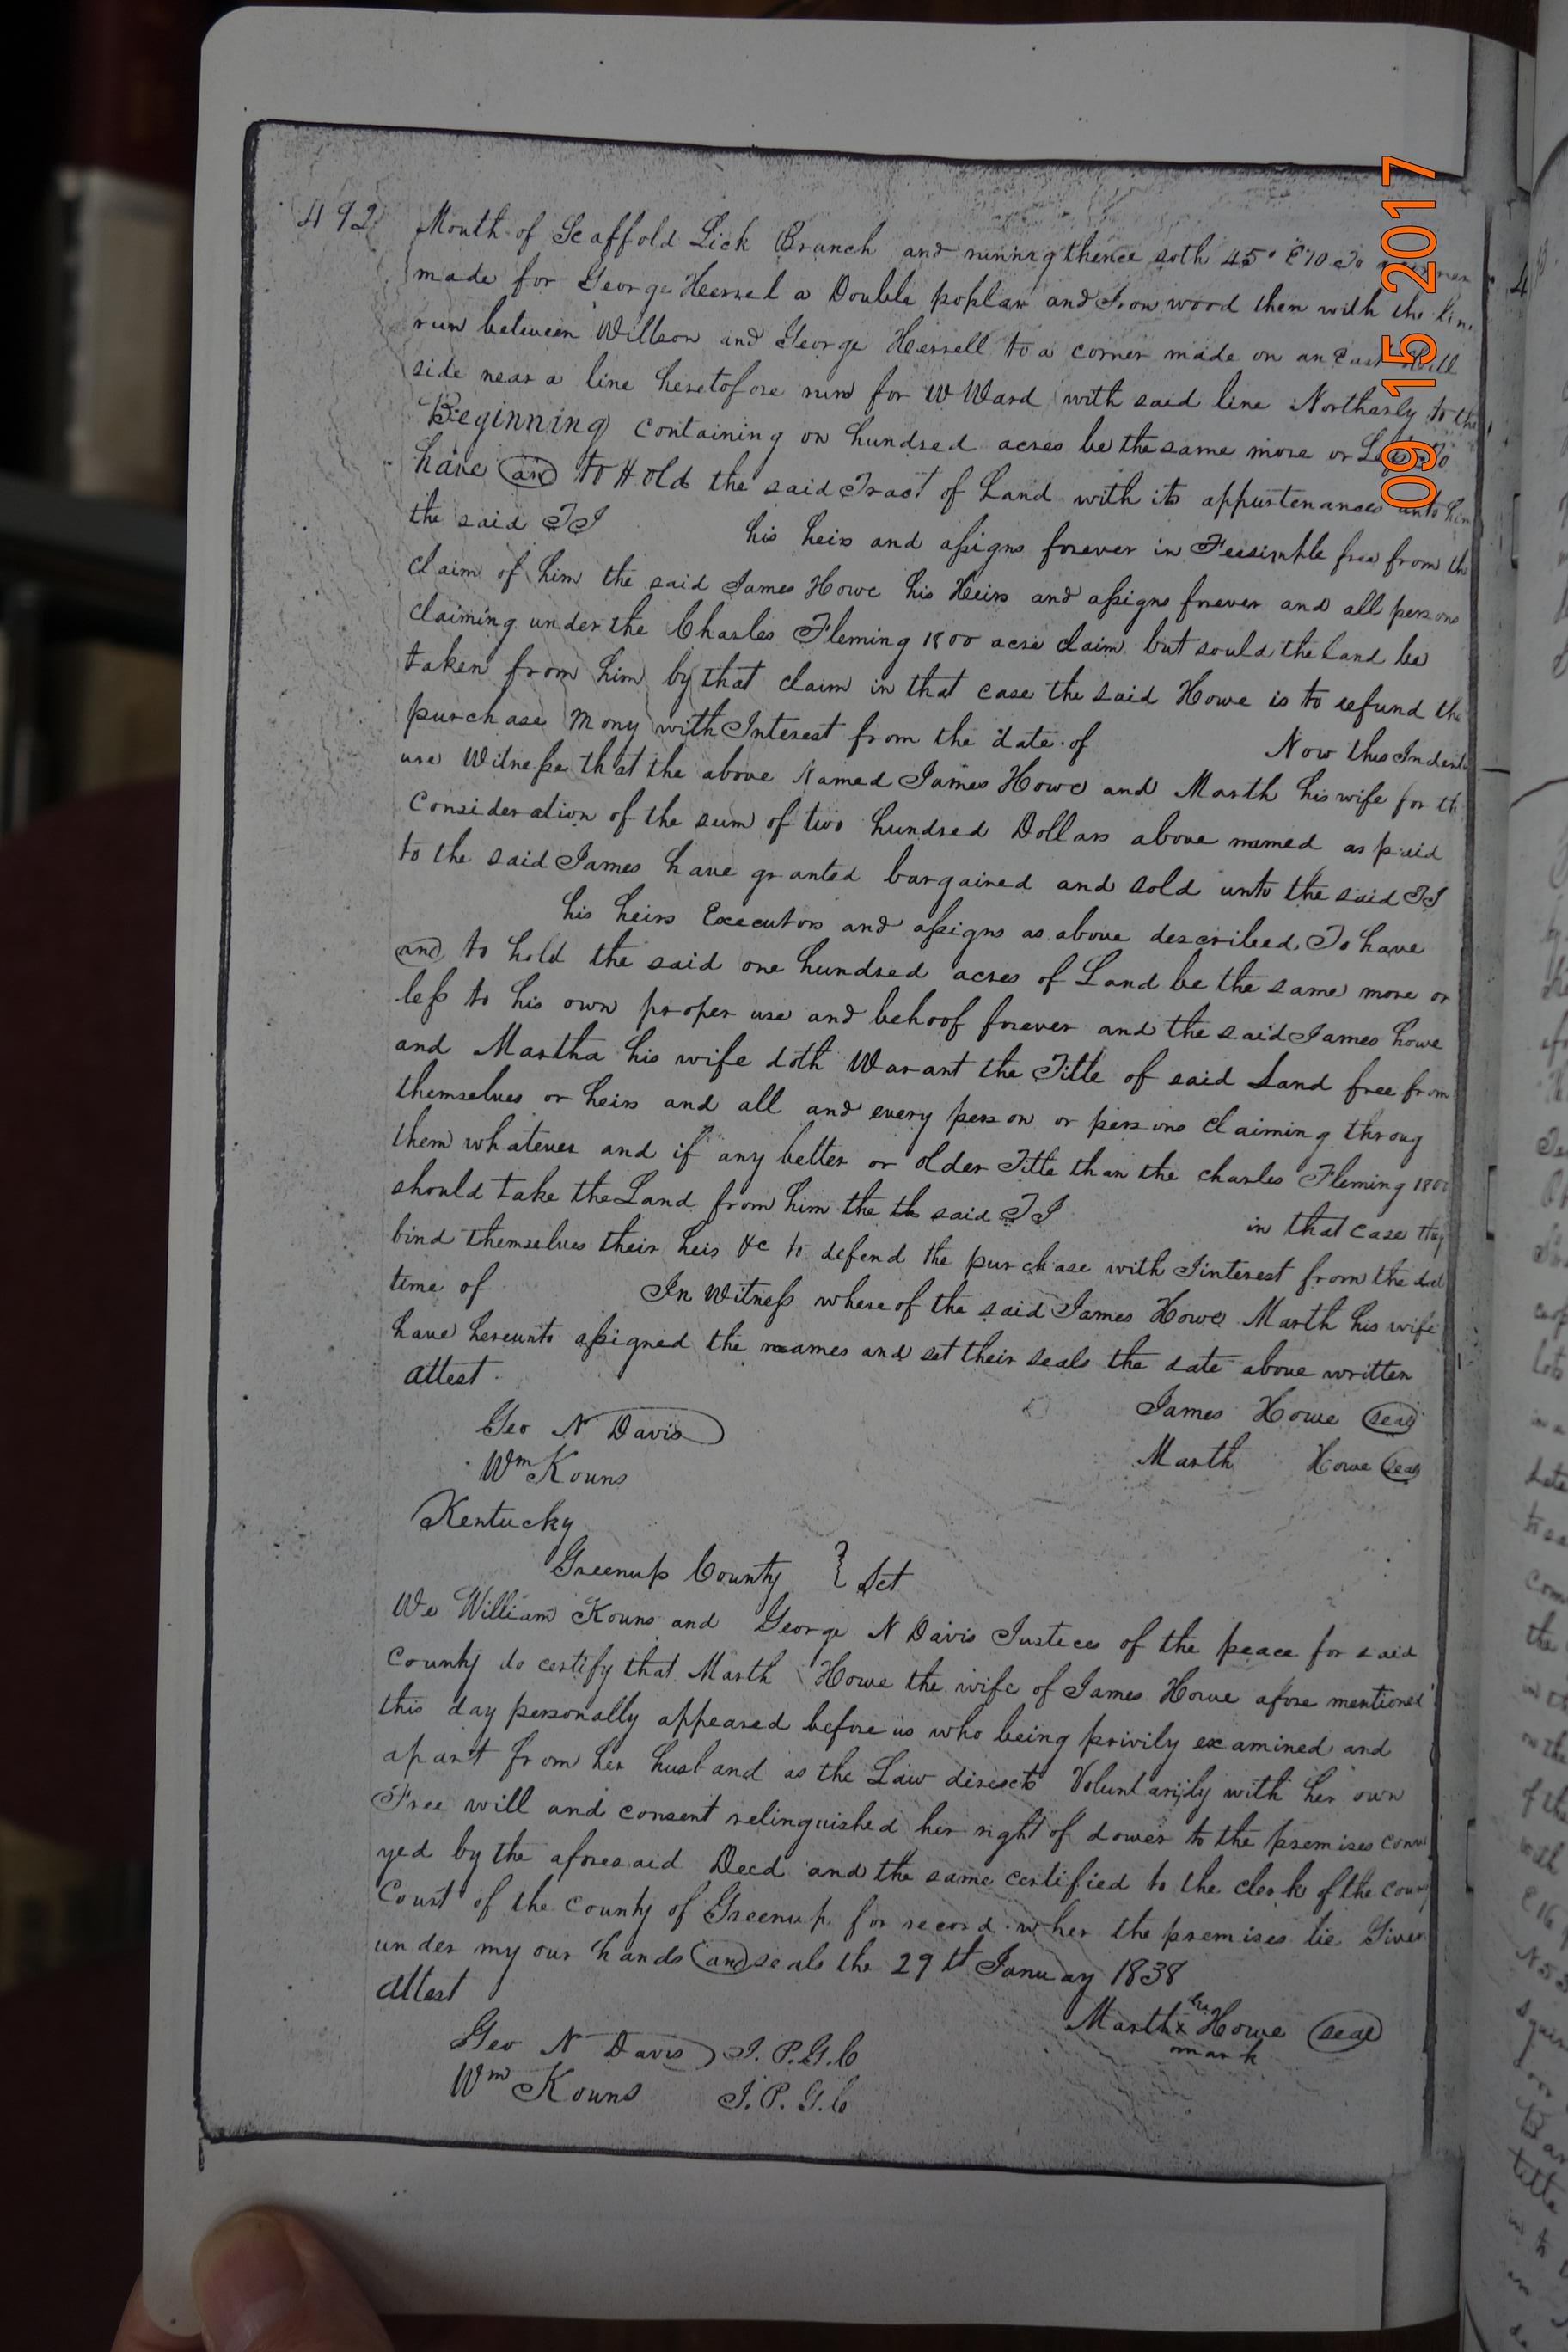 492
Mouth of Scaffold Lick Branch and runnig thence soth 45° E 70 To
made for George Hensel a Double poplar and Iron wood then with the line
run between Willson and George Hensell to a corner made on an East Hill
side near a line heretofore run for W Ward with said line Northarly to the
Beginning containing on hundred acres be the same more or Less To
have and to Hold the said Tract of Land with its appurtenances unto him
the said TJ his heirs and assigns forever in Feesimble free from the
claim of him the said James Howe his Heirs and assigns forever and all persons
claiming under the Charles Fleming 1800 acre claim but sould the Land be
taken from him by that claim in that case the said Howe is to refund the
purchase Mony with Interest from the date of Now this Indent
ure Witnesse that the above Named James Howe and Marth his wife for th
Consideration of the sum of two hundred Dollars above named as paid
to the said James have granted bargained and sold unto the said TJ
his heirs Executors and assigns as above described To have
and to hold the said one hundred acres of Land be the same more or
less to his own proper use and behoof forever and the said James howe
and Martha his wife doth Warant the Title of said Land free from
themselves or heirs and all and every person or persons claiming throug
them whatever and if any better or older Title than the charles Fleming 1800
should take the Land from him the th said TJ in that case they
bind themselves their heis &c to defend the purchase with Jinterest from the
time of In Witness whereof the said James Howe Marth his wife
have hereunto assigned the names and set their seals the date above written
Attest
Geo N Davis James Howe seal
Wm Kouns Marth Howe seal
Kentucky
Greenup County } Sct
We William Kouns and George N Davis Justices of the peace for said
County do certify that Marth Howe the wife of James Howe afore mentioned
this day personally appeared before us who being privily examined and
apart from her husband as the Law directs Voluntarily with her own
Free will and consent relinquished her right of dower to the premises conve
yed by the aforesaid Deed and the same certified to the clerk of the county
Court of the County of Greenup for record wher the premises lie Given
under my our hands and seals the 29th January 1838
Attest
her
Marth x Howe seal
mark
Geo N Davis J. P. G. C
Wm Kouns J. P. G. C
09 15 2017